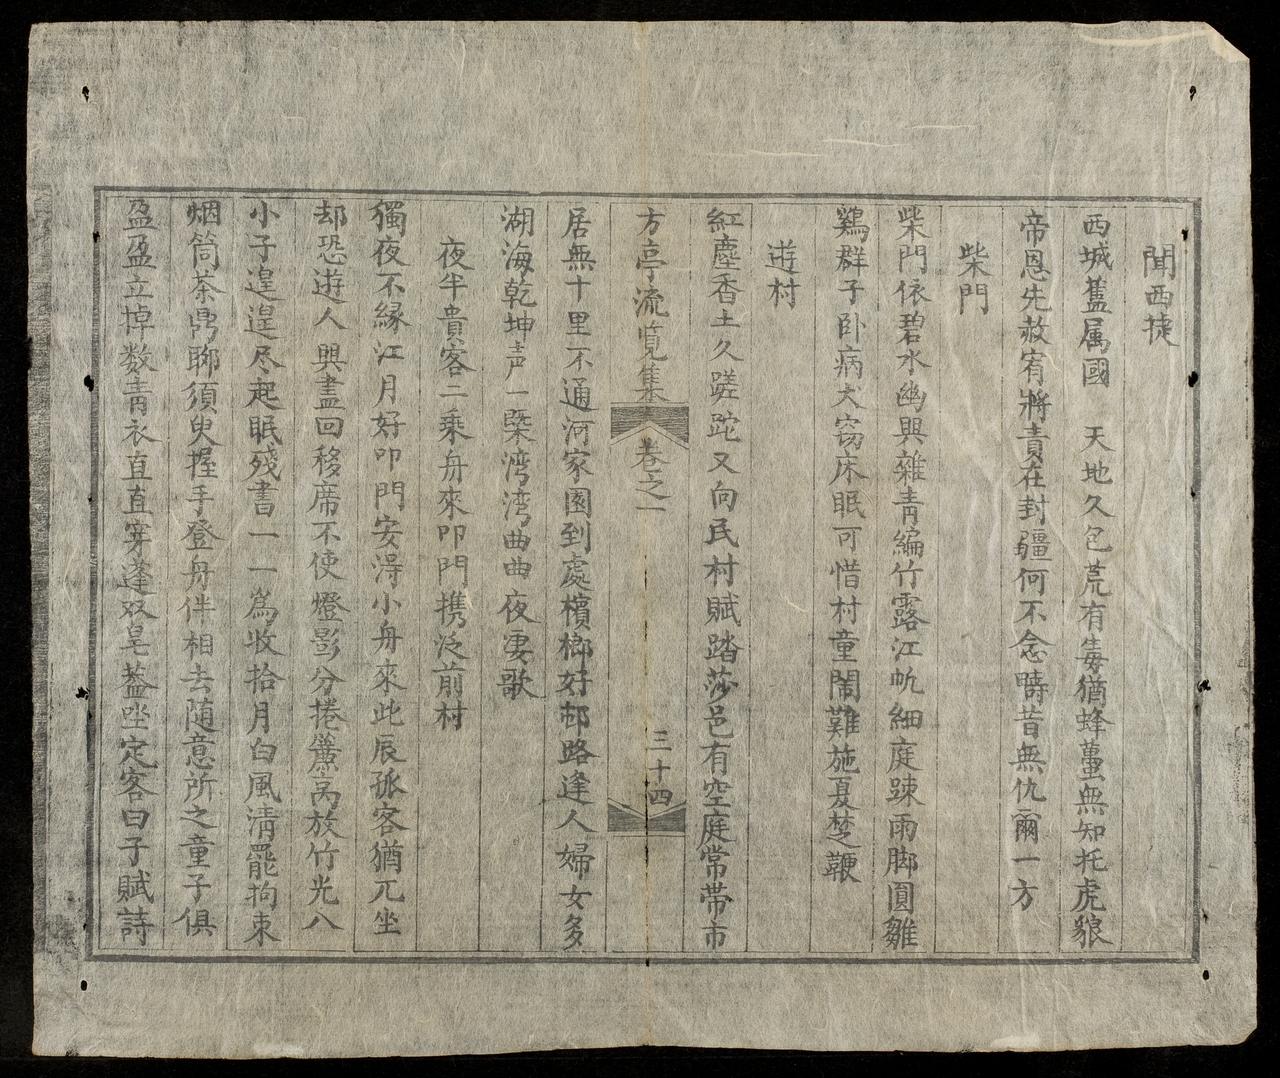 聞西捷
西城舊属國　天地久包荒有毒猶蜂蠆無知托虎狼
帝恩先赦宥將責在封疆何不念疇昔無仇爾一方
柴門
柴門依碧水幽興雜青編竹露江帆細庭踈雨脚圓雛
鷄群子卧病犬窃床眠可惜村童鬧難施夏楚鞭
遊村
紅塵香土久蹉跎又向民村賦踏莎邑有空庭常带市
方亭流覧集
卷之一
三十四
居無十里不通河家園到處檳榔好邨路逢人婦女多
湖海乾坤声一槩湾湾曲曲夜妻歌
夜半貴客二乘舟來叩門携泛前村
獨夜不縁江月好叩門安淂小舟來此辰孤客猶兀坐
却恐遊人興盡回移席不使燈影分捲簾高放竹光八
小子遑遑尽起眠殘書一一為收拾月白風淸罷拘束
烟筒茶鼎聊須臾握手登舟伴相去随意所之童子俱
盈盈立掉数青衣直直穿逢双皂盖唑定客曰子賦詩